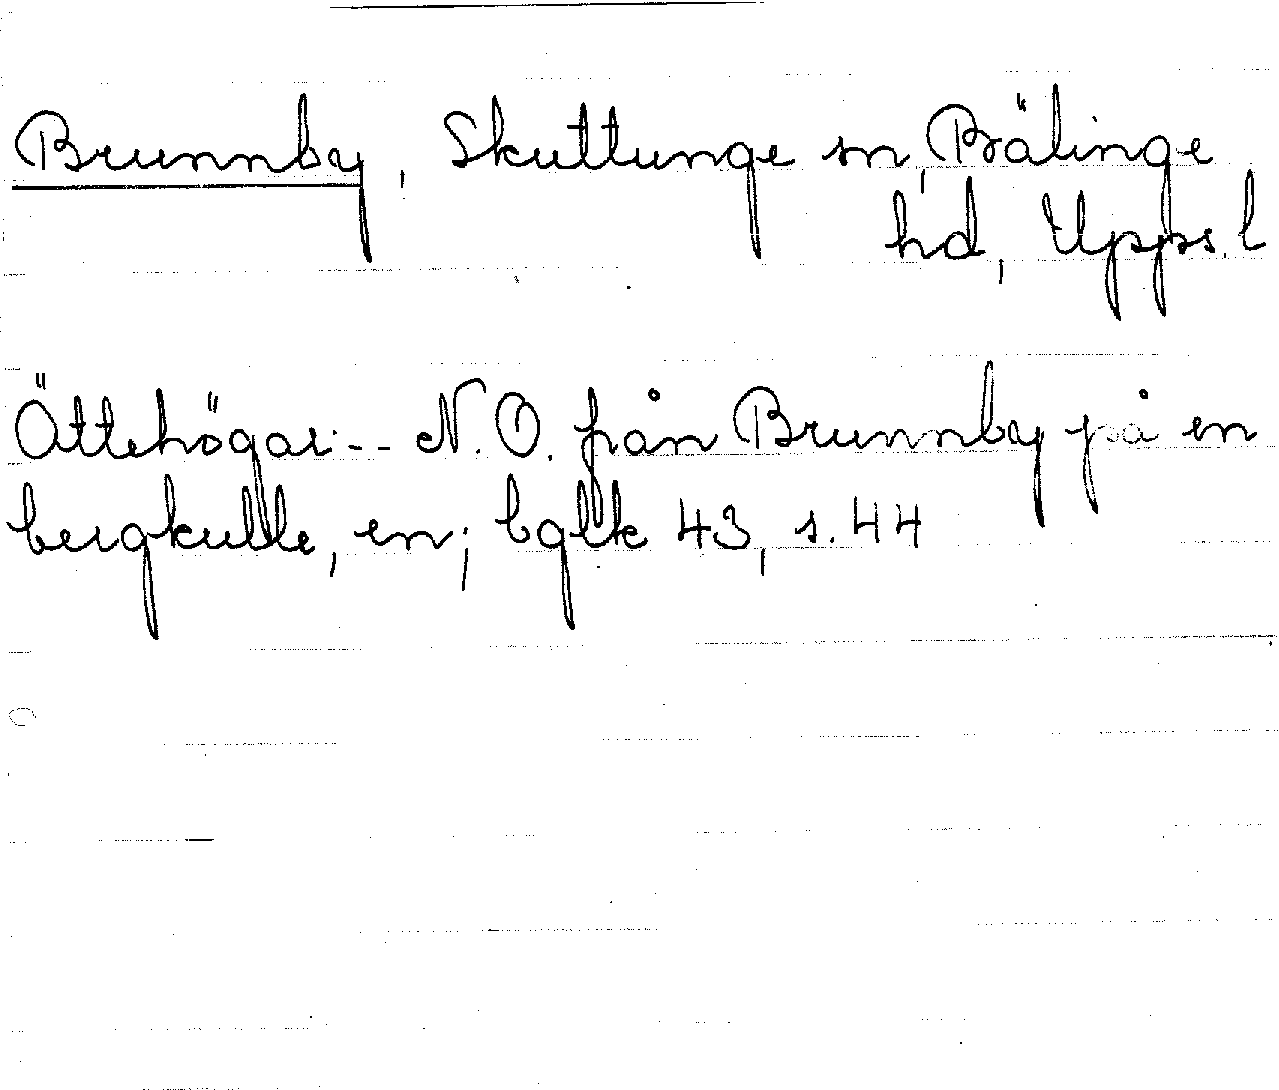 Brunnby, Skuttunge sn, Bälinge
hd, Upps. l
Ättehögar -- N.O. från Brunnby på en
bergkulle, en; bglk 43, s. 44